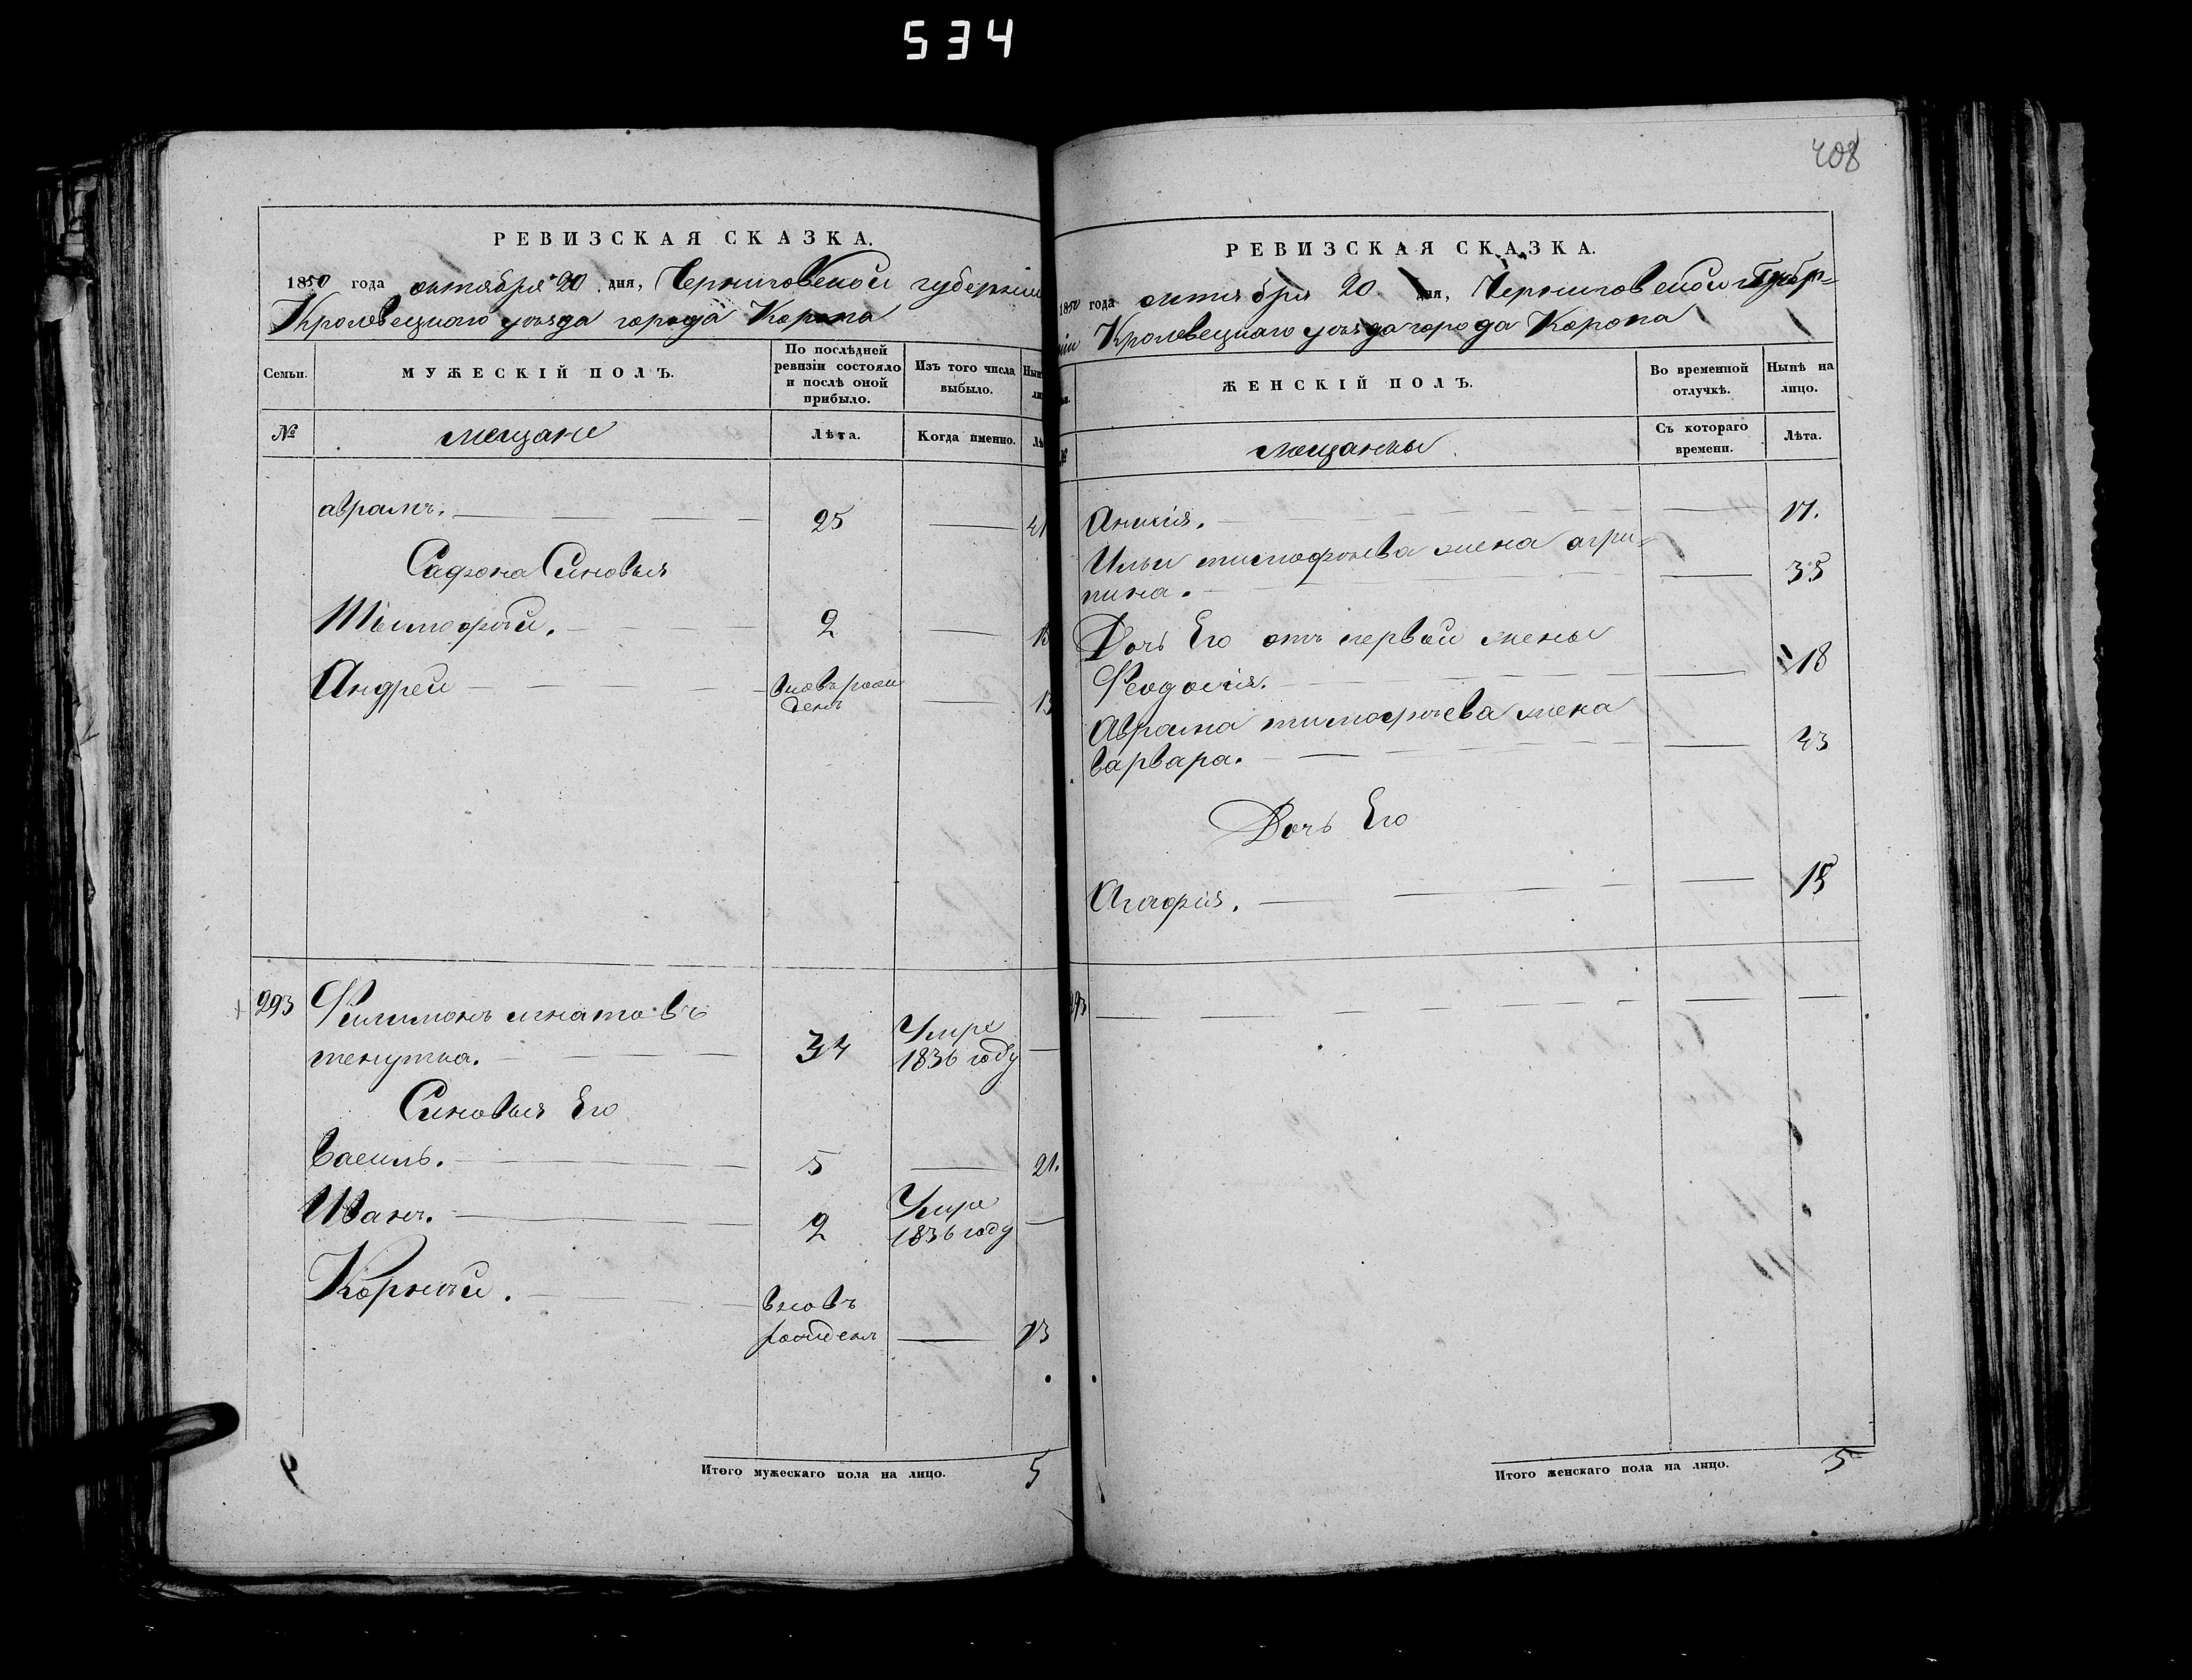 534
408
РЕВИЗСКАЯ СКАЗКА.
1850 года октября 20 дня, Черниговской губерніи
Кролевецкаго уѣзда города Коропа
Семьи.
МУЖЕСКІЙ ПОЛЪ.
По послѣдней
ревизіи состояло
и послѣ оной
прибыло.
Изъ того числа
выбыло.
№
мещане
Лѣта.
Когда именно.
аврамъ. 25 41
Сафона Синовья
Тимофѣй. 2
Андрей вновь рож
денъ 13
293 Филимонъ игнатовъ
тенутка. 34 Умре
1836 году
Синовья Его
Василь. 5 21.
Иванъ. 2 Умре
1836 году
Корнѣй. вновъ
рожденъ 13
Итого мужескаго пола на лицо. 5
РЕВИЗСКАЯ СКАЗКА.
1850 года октября 20 дня, Черниговской Губер=
ніи Кролевецкаго уѣзда города Коропа
ЖЕНСКІЙ ПОЛЪ.
Во временной
отлучкѣ.
Нынѣ на
лицо.
мещанки
Съ котораго
времени.
Лѣта.
Анисія. 17.
Ильи тимофѣева жена агри=
пина. 35
Дочь Его отъ первой жены
Феодосія. 18
Аврама тимофѣева жена
варвара. 43
Дочь Его
Агафія. 15
293
Итого женскаго пола на лицо. 5